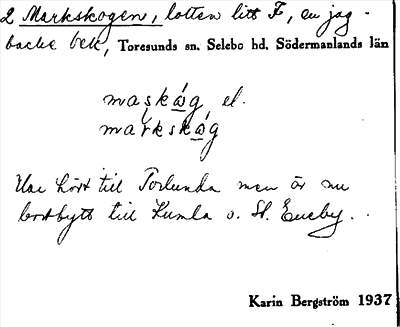 2 Markskogen, lotten litt F, en jag-
backe belt, Toresunds sn. Selebo hd. Södermanlands län
maskåg el.
markskåg
Har hört till Torlunda men är nu
bortbytt till Kumla o. St. Eneby.
Karin Bergström 1937